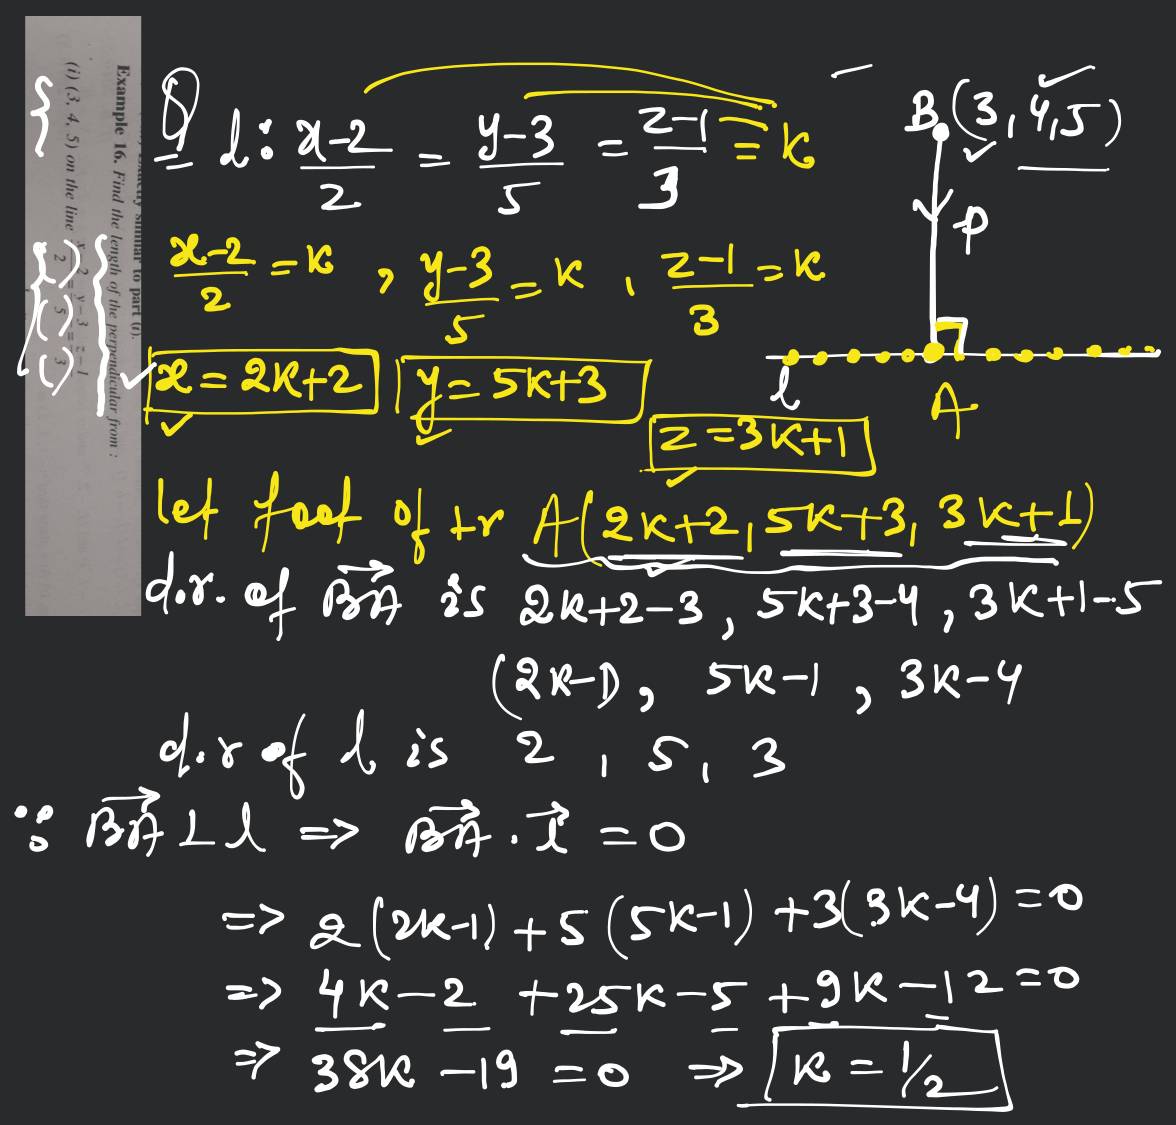 Example 16. Find the length of the perpendicular from :
(i) (3, 4, 5) on the line x-2/2 = y-3/5 = z-1/3
Q l: x-2/2 = y-3/5 = z-1/3 = k
B(3, 4, 5)
p
x-2/2 = k , y-3/5 = k , z-1/3 = k
l
A
x = 2k+2 y = 5k+3
z = 3k+1
let foot of ⊥r A(2k+2, 5k+3, 3k+1)
d.r. of BA is 2k+2-3, 5k+3-4, 3k+1-5
(2k-1), 5k-1, 3k-4
d.r of l is 2, 5, 3
∵ BA ⊥ l => BA . l = 0
=> 2(2k-1) + 5(5k-1) + 3(3k-4) = 0
=> 4k-2 + 25k-5 + 9k-12 = 0
=> 38k - 19 = 0 => k = 1/2